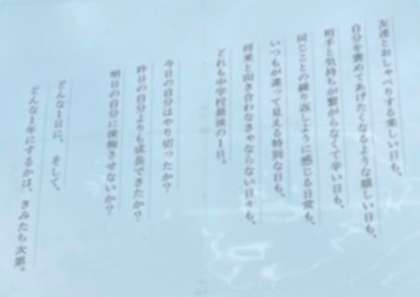 友達とおしゃべりする楽しい日も、
自分を褒めてあげたくなるような嬉しい日も、
相手と気持ちが繋がらなくて辛い日も、
同じことの繰り返しように感じる日常も、
いつもが違って見える特別な日も、
将来と向き合わなきゃならない日々も、
どれも中学校最後の1日。
今日の自分はやり切ったか?
昨日の自分よりも成長できたか?
明日の自分に後悔させないか?
どんな1日に、そして、
どんな1年にするかは、きみたち次第。